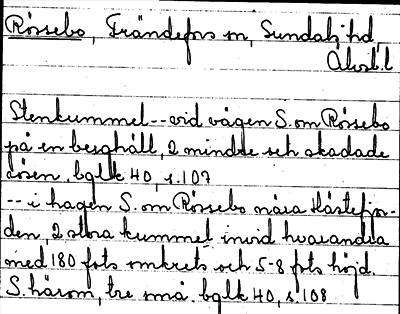 Rörsebo, Frändefors sn, Sundals hd,
Älvsb. l
Stenkummel -- vid vägen S. om Rörsebo
på en berghäll, 2 mindre och skadade
rösen. bglk 40, s. 107
-- i hagen S. om Rörsebo nära Hästefjor-
den, 2 stora kummel invid hvarandra
med 180 fots omkrets och 5-8 fots höjd.
S. härom, tre små. bglk 40, s. 108